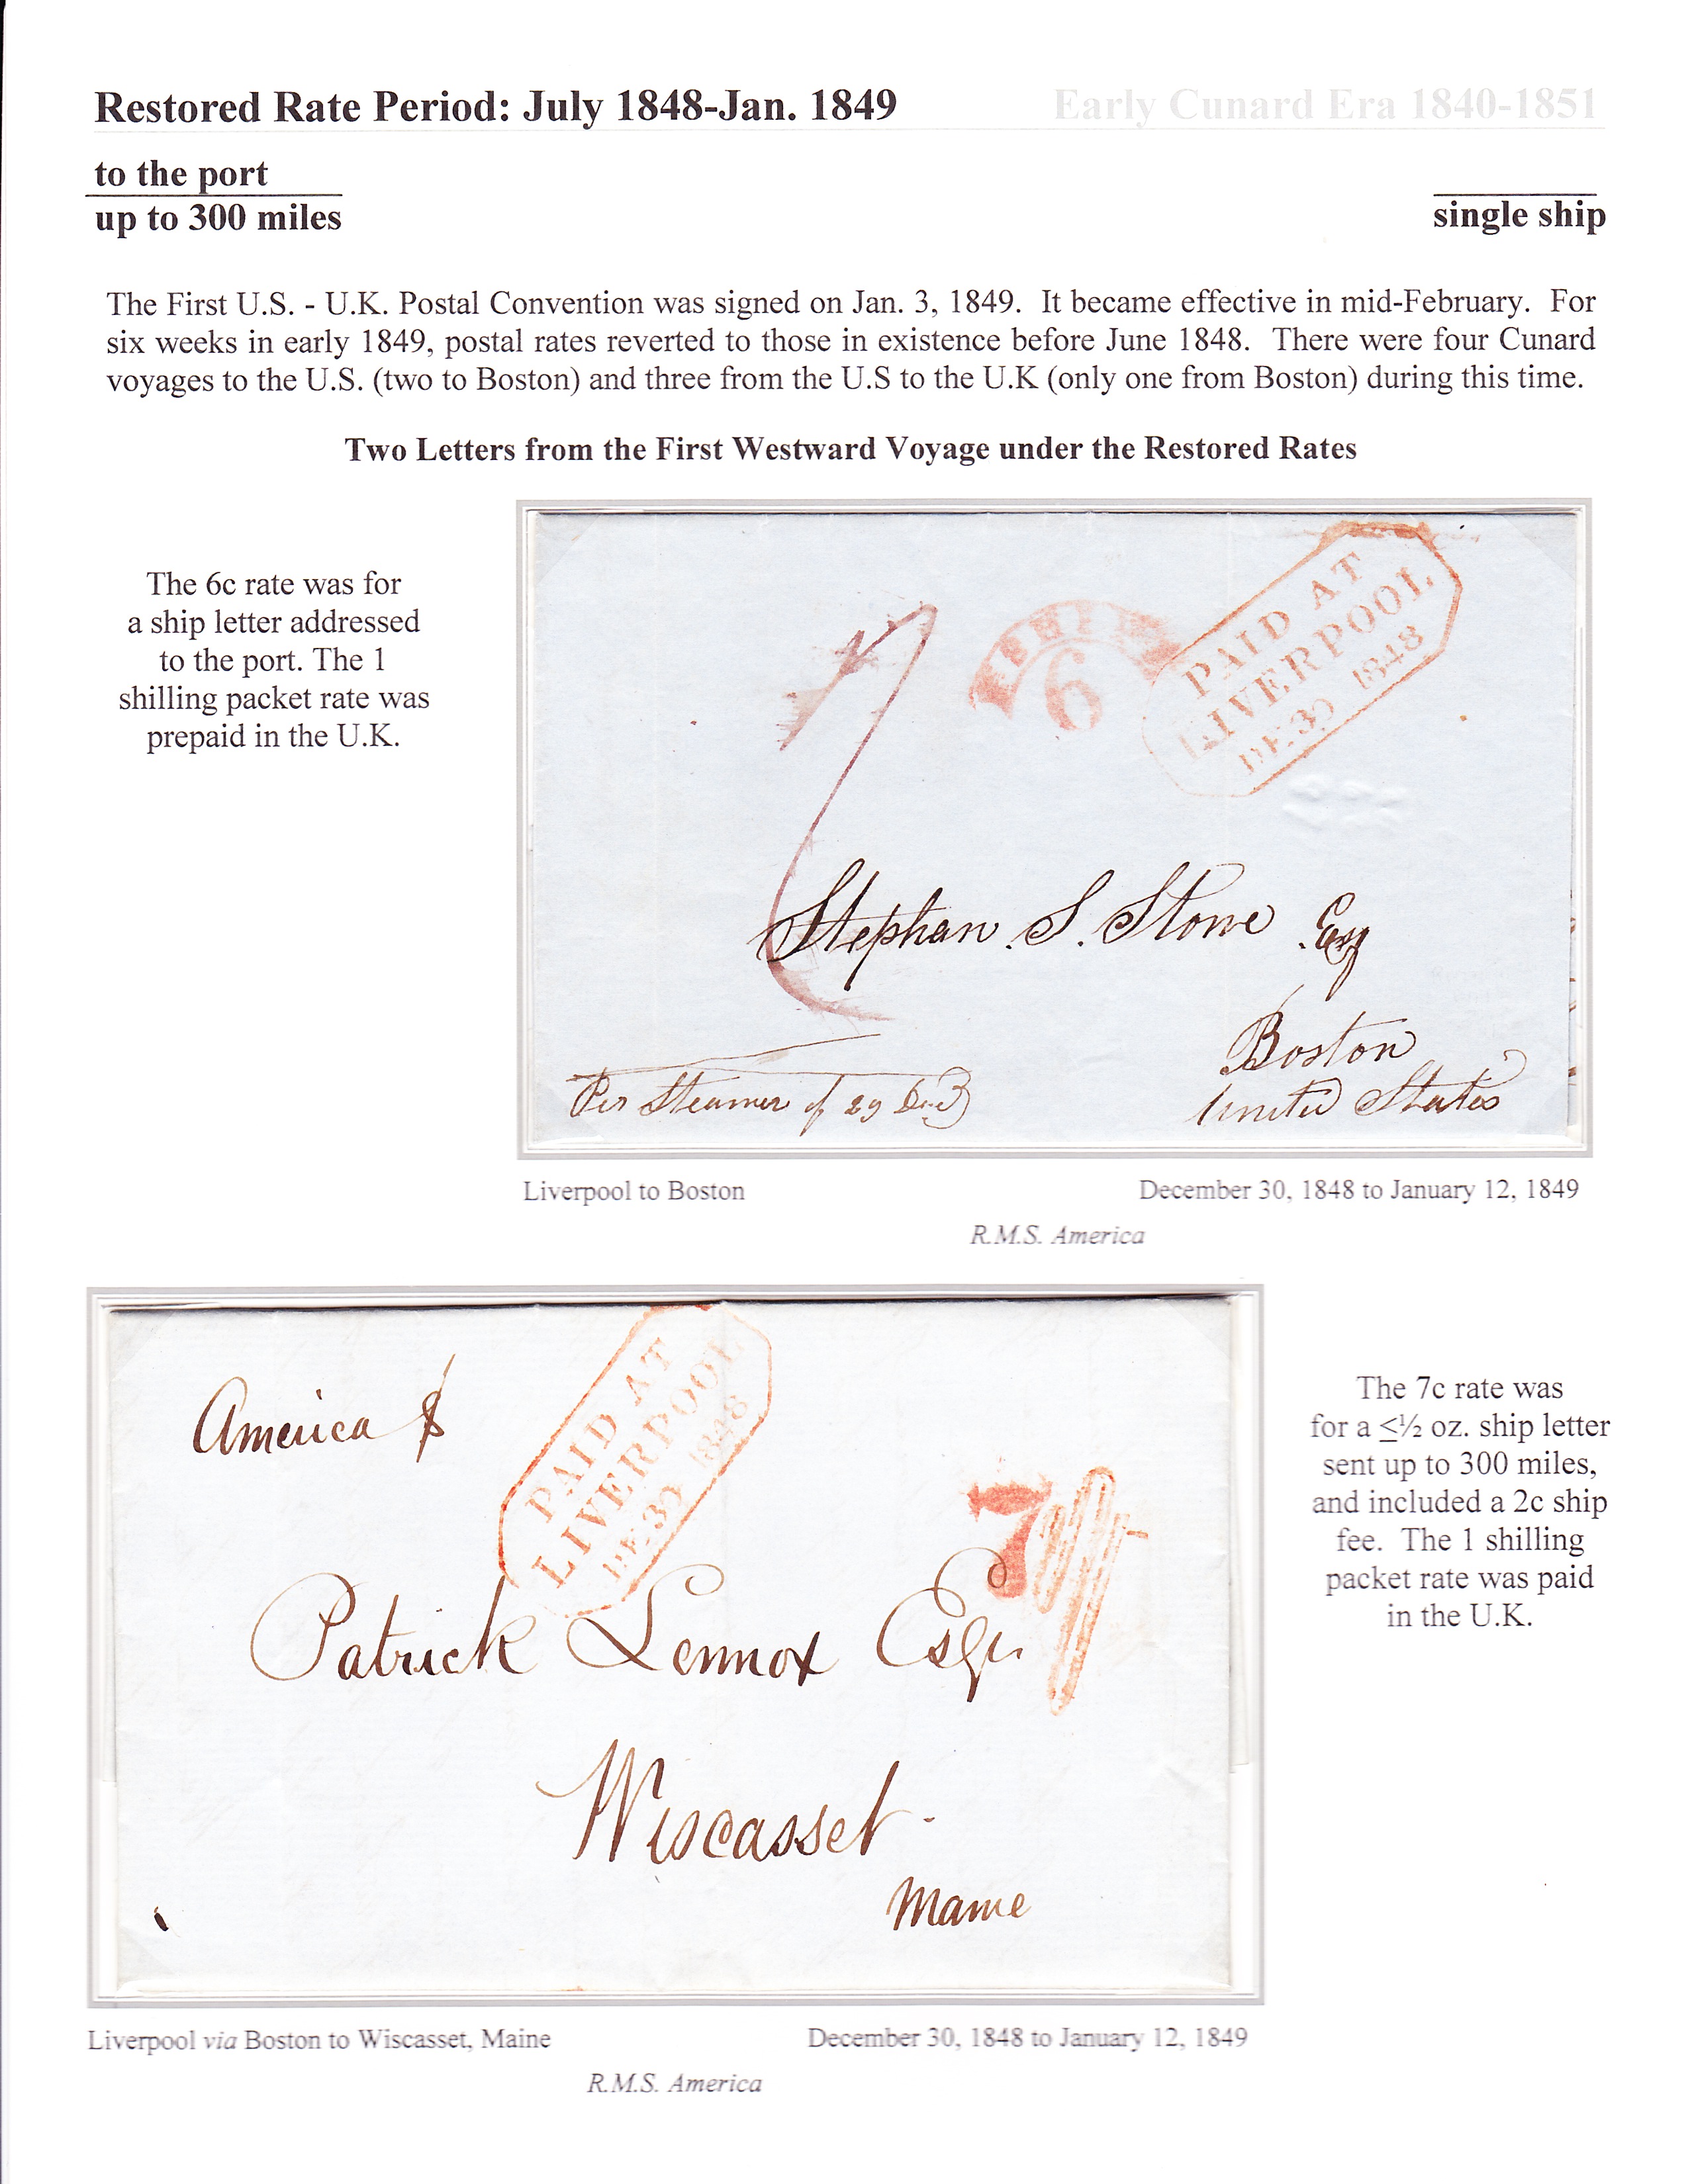 Restored Rate Period: July 1848-Jan. 1849
Early Cunard Era 1840-1851
to the port
up to 300 miles
single ship
The First U.S. - U.K. Postal Convention was signed on Jan. 3, 1849. It became effective in mid-February. For
six weeks in early 1849, postal rates reverted to those in existence before June 1848. There were four Cunard
voyages to the U.S. (two to Boston) and three from the U.S to the U.K (only one from Boston) during this time.
Two Letters from the First Westward Voyage under the Restored Rates
The 6c rate was for
a ship letter addressed
to the port. The 1
shilling packet rate was
prepaid in the U.K.
SHIP
6
PAID AT
LIVERPOOL
DE 30 1848
Stephan S. Stowe Esq
Boston
United States
Per Steamer of 29 Dec
Liverpool to Boston
December 30, 1848 to January 12, 1849
R.M.S. America
America
PAID AT
LIVERPOOL
DE 30 1848
7
Patrick Lennox Esqr
Wiscasset
Maine
The 7c rate was
for a ≤½ oz. ship letter
sent up to 300 miles,
and included a 2c ship
fee. The 1 shilling
packet rate was paid
in the U.K.
Liverpool via Boston to Wiscasset, Maine
December 30, 1848 to January 12, 1849
R.M.S. America